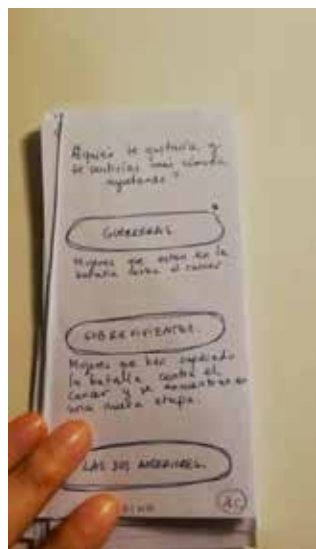 A quien te gustaría y
te sentirías más cómoda
ayudando?
GUERRERAS
Mujeres que están en la
batalla contra el cancer
SOBREVIVIENTES.
Mujeres que han superado
la batalla contra el
cancer y se encuentran en
una nueva etapa.
LAS DOS ANTERIORES.